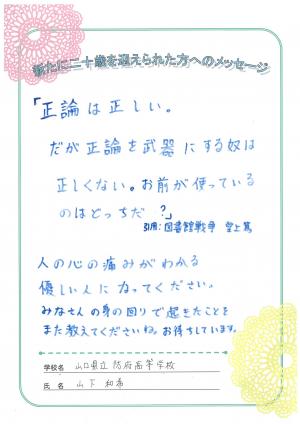 新たに二十歳を迎えられた方へのメッセージ
「正論は正しい。
だが正論を武器にする奴は
正しくない。お前が使っている
のはどっちだ?」
引用:図書館戦争 堂上篤
人の心の痛みがわかる
優しい人になってください。
みなさんの身の回りで起きたことを
また教えてくださいね。お待ちしています。
学校名 山口県立防府高等学校
氏名 山下 和希